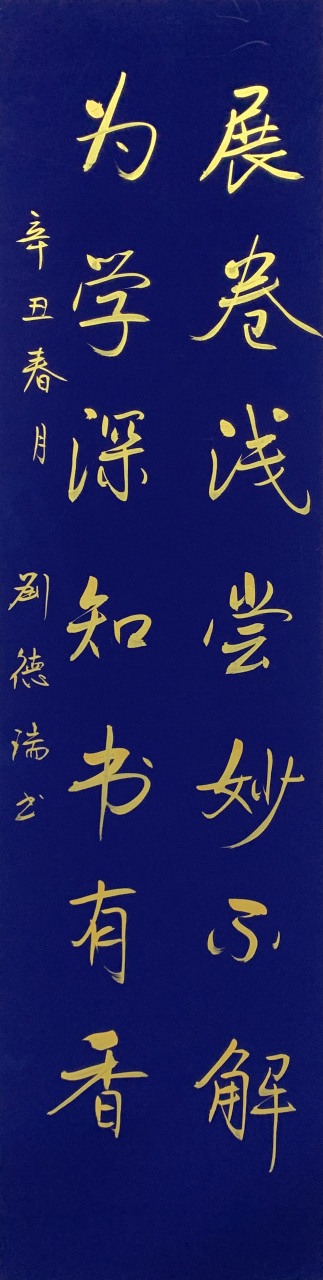 展卷浅尝妙不解
为学深知书有香
辛丑春月 刘德瑞书